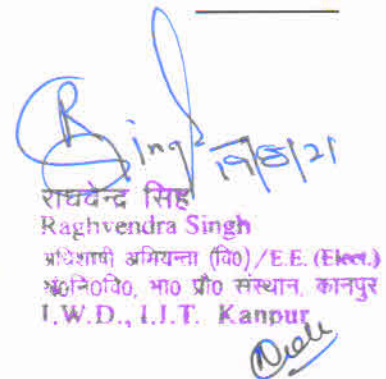 Singh 19/8/21
राघवेन्द्र सिंह
Raghvendra Singh
अधिशाषी अभियन्ता (वि0)/E.E. (Elect.)
सं0नि0वि0, भा0 प्रौ0 संस्थान, कानपुर
I.W.D., I.I.T. Kanpur